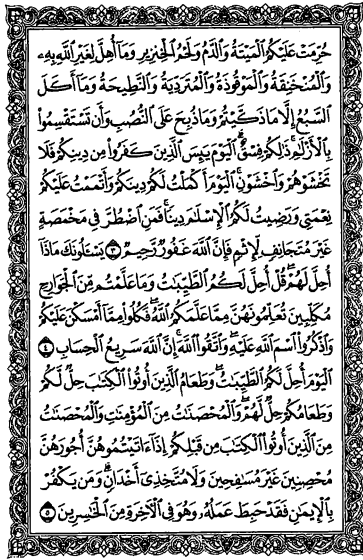 حُرِّمَتْ عَلَيْكُمُ ٱلْمَيْتَةُ وَٱلدَّمُ وَلَحْمُ ٱلْخِنزِيرِ وَمَآ أُهِلَّ لِغَيْرِ ٱللَّهِ بِهِۦ
وَٱلْمُنْخَنِقَةُ وَٱلْمَوْقُوذَةُ وَٱلْمُتَرَدِّيَةُ وَٱلنَّطِيحَةُ وَمَآ أَكَلَ
ٱلسَّبُعُ إِلَّا مَا ذَكَّيْتُمْ وَمَا ذُبِحَ عَلَى ٱلنُّصُبِ وَأَن تَسْتَقْسِمُوا۟
بِٱلْأَزْلَٰمِ ذَٰلِكُمْ فِسْقٌ ۗ ٱلْيَوْمَ يَئِسَ ٱلَّذِينَ كَفَرُوا۟ مِن دِينِكُمْ فَلَا
تَخْشَوْهُمْ وَٱخْشَوْنِ ۚ ٱلْيَوْمَ أَكْمَلْتُ لَكُمْ دِينَكُمْ وَأَتْمَمْتُ عَلَيْكُمْ
نِعْمَتِى وَرَضِيتُ لَكُمُ ٱلْإِسْلَٰمَ دِينًا ۚ فَمَنِ ٱضْطُرَّ فِى مَخْمَصَةٍ
غَيْرَ مُتَجَانِفٍ لِّإِثْمٍ ۙ فَإِنَّ ٱللَّهَ غَفُورٌ رَّحِيمٌ ٣ يَسْـَٔلُونَكَ مَاذَآ
أُحِلَّ لَهُمْ ۖ قُلْ أُحِلَّ لَكُمُ ٱلطَّيِّبَٰتُ ۙ وَمَا عَلَّمْتُم مِّنَ ٱلْجَوَارِحِ
مُكَلِّبِينَ تُعَلِّمُونَهُنَّ مِمَّا عَلَّمَكُمُ ٱللَّهُ ۖ فَكُلُوا۟ مِمَّآ أَمْسَكْنَ عَلَيْكُمْ
وَٱذْكُرُوا۟ ٱسْمَ ٱللَّهِ عَلَيْهِ ۖ وَٱتَّقُوا۟ ٱللَّهَ ۚ إِنَّ ٱللَّهَ سَرِيعُ ٱلْحِسَابِ ٤
ٱلْيَوْمَ أُحِلَّ لَكُمُ ٱلطَّيِّبَٰتُ ۖ وَطَعَامُ ٱلَّذِينَ أُوتُوا۟ ٱلْكِتَٰبَ حِلٌّ لَّكُمْ
وَطَعَامُكُمْ حِلٌّ لَّهُمْ ۖ وَٱلْمُحْصَنَٰتُ مِنَ ٱلْمُؤْمِنَٰتِ وَٱلْمُحْصَنَٰتُ
مِنَ ٱلَّذِينَ أُوتُوا۟ ٱلْكِتَٰبَ مِن قَبْلِكُمْ إِذَآ ءَاتَيْتُمُوهُنَّ أُجُورَهُنَّ
مُحْصِنِينَ غَيْرَ مُسَٰفِحِينَ وَلَا مُتَّخِذِىٓ أَخْدَانٍ ۗ وَمَن يَكْفُرْ
بِٱلْإِيمَٰنِ فَقَدْ حَبِطَ عَمَلُهُۥ وَهُوَ فِى ٱلْـَٔاخِرَةِ مِنَ ٱلْخَٰسِرِينَ ٥